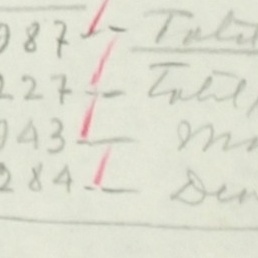 987 - Total
227 - Total
943 - Mo
284 - Den